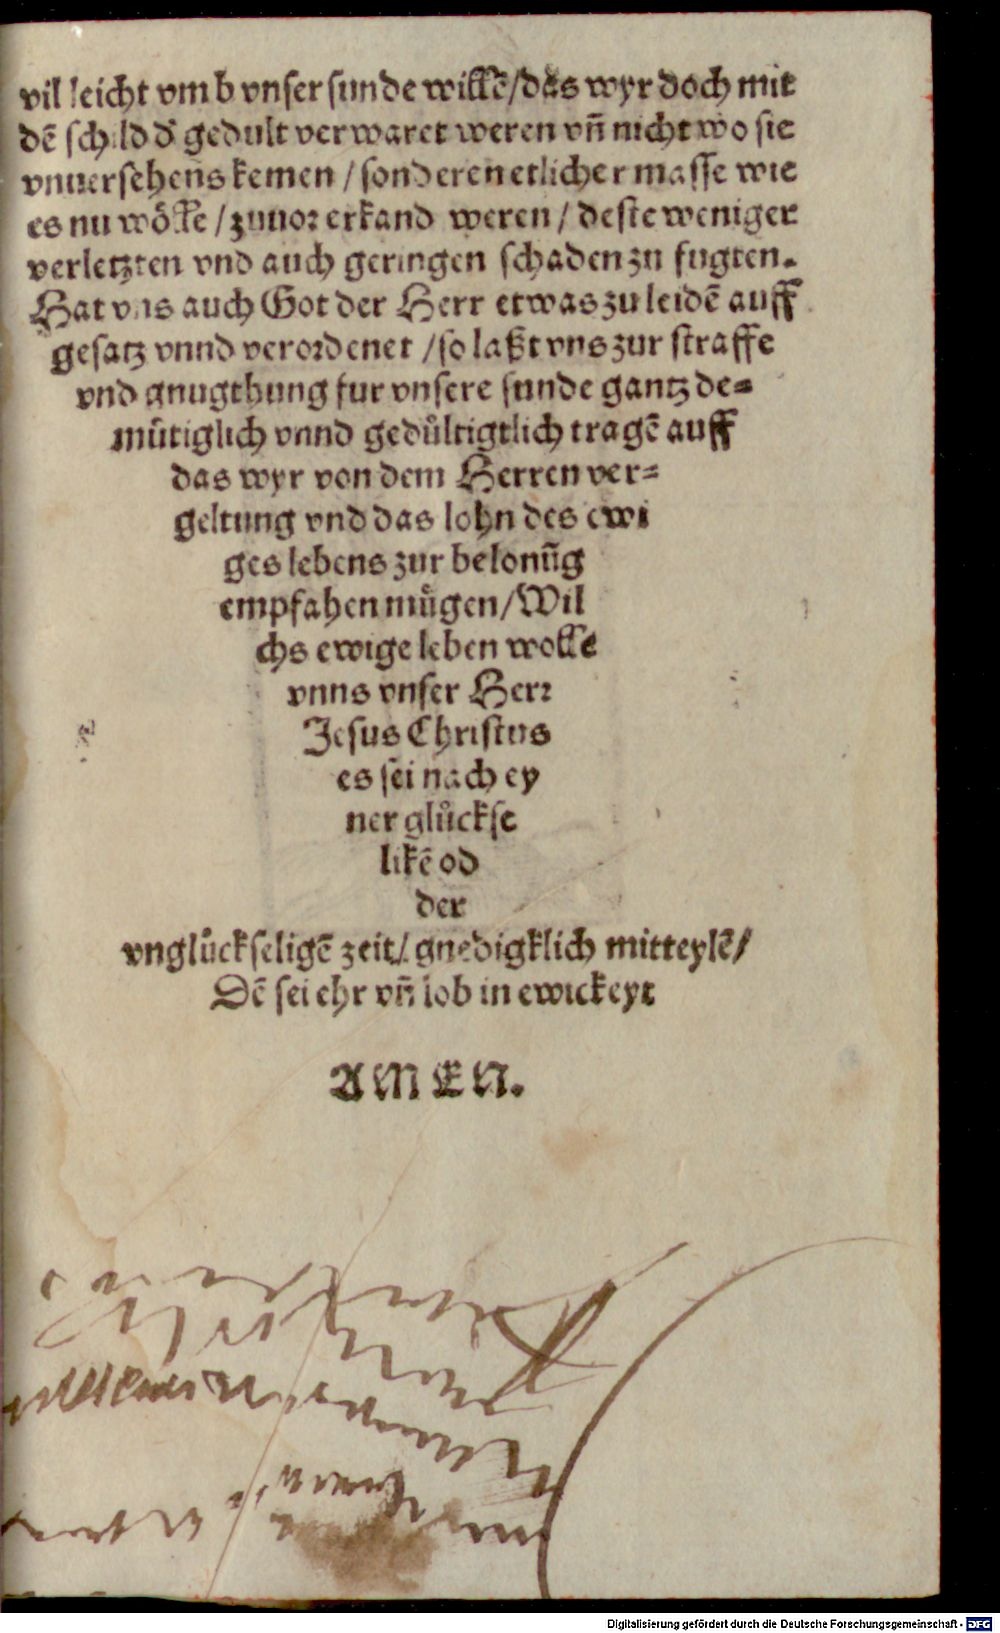 vil leicht vmb vnser sunde willē/das wyr doch mit
dē schild d' gedult verwaret weren vn̄ nicht wo sie
vnuersehens kemen / sonderen etlicher masse wie
es nu wo̊lle / zuuor erkand weren / deste weniger
verletzten vnd auch geringen schaden zu fugten.
Hat vns auch Got der Herr etwas zu leidē auff
gesatz vnnd verordenet /so laßt vns zur straffe
vnd gnugthung fur vnsere sunde gantz de=
mu̇tiglich vnnd gedůltigtlich tragē auff
das wyr von dem Herren ver=
geltung vnd das lohn des ewi
ges lebens zur belonūg
empfahen můgen/Wil
chs ewige leben wolle
vnns vnser Herr
Jesus Christus
es sei nach ey
ner glůckse
likē od
der
vnglůckseligē zeit/ gnedigklich mitteylē/
Dē sei ehr vn̄ lob in ewickeyt
AMEN.
Digitalisierung gefördert durch die Deutsche Forschungsgemeinschaft - DFG